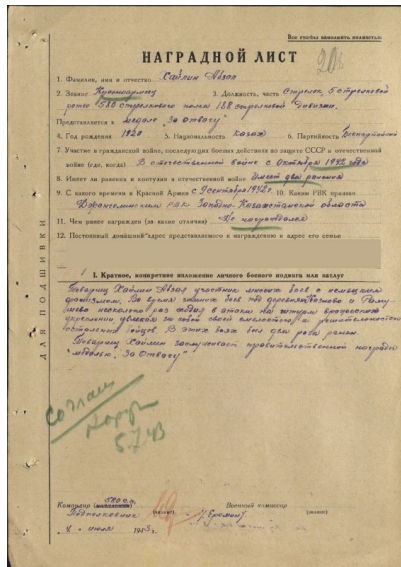 Все графы заполнять полностью.
НАГРАДНОЙ ЛИСТ
1. Фамилия, имя и отчество Хайлин Абзал
2. Звание Красноармеец 3. Должность, часть Стрелок 5 стрелковой
роты 580 стрелкового полка 188 стрелковой дивизии.
Представляется к медали „За отвагу"
4. Год рождения 1920 5. Национальность казах 6. Партийность Беспартийный
7. Участие в гражданской войне, последующих боевых действиях по защите СССР и отечественной
войне (где, когда) В отечественной войне с октября 1942 года
8. Имеет ли ранения и контузии в отечественной войне Имеет два ранения
9. С какого времени в Красной Армии с 9 сентября 1942 г. 10. Каким РВК призван
РВК Западно-Казахстанской области
11. Чем ранее награжден (за какие отличия) Не награждался
12. Постоянный домашний адрес представляемого к награждению и адрес его семьи
I. Краткое, конкретное изложение личного боевого подвига или заслуг
Товарищ Хайлин Абзал участник многих боев с немецким
фашизмом. Во время зимних боев под деревнями и
несколько раз ходил в атаки на штурм вражеских
укреплений увлекая за собой своей смелостью и решительностью
остальных бойцов. В этих боях был два раза ранен.
Товарищ Хайлин заслуживает правительственной награды
медалью „За Отвагу"
ДЛЯ ПОДШИВКИ
Согласен
5.7.43
Командир 580 сп
Подполковник (звание) Военный комиссар (звание)
июля 1943 г.